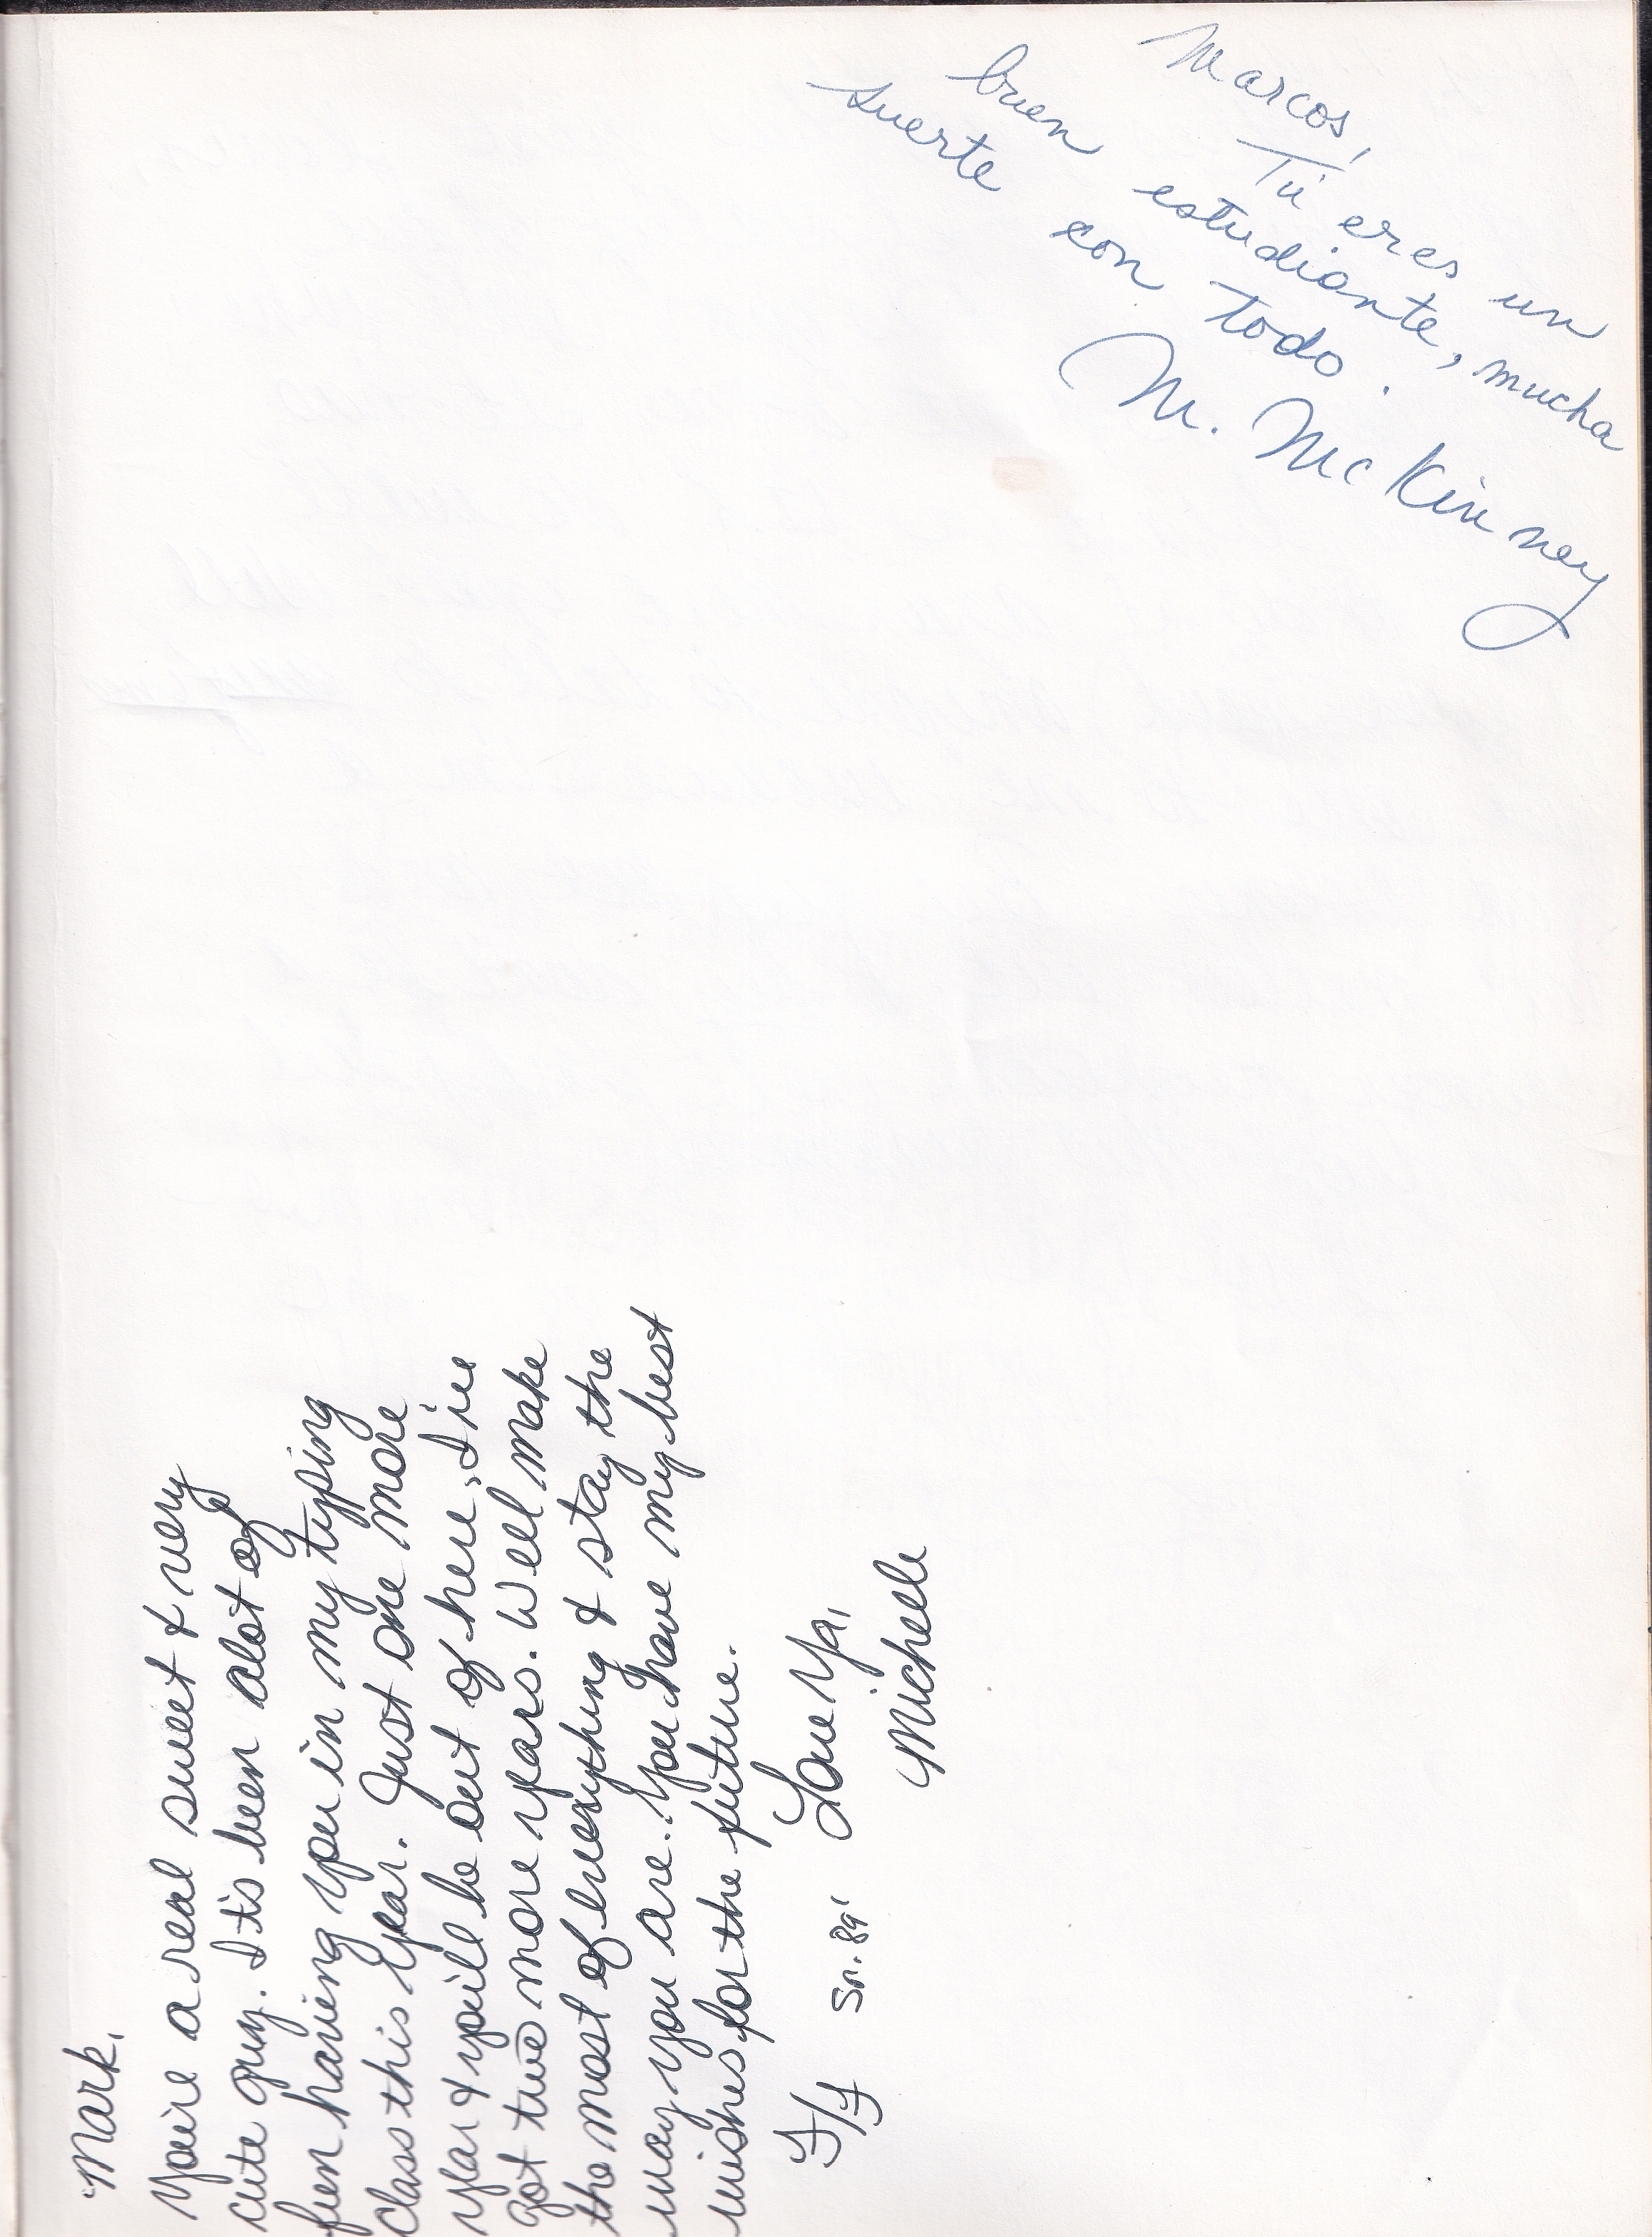 Marcos,
Tú eres un
buen estudiante, mucha
suerte con todo.
M. McKinney
Mark,
You're a real sweet & very
cute guy. It's been alot of
fun having you in my typing
class this year. Just one more
year & you'll be out of here, I've
got two more years. Well make
the most of everything & stay the
way you are. You have my best
wishes for the future.
Love Ya,
Michele
F/F Sr. 89'